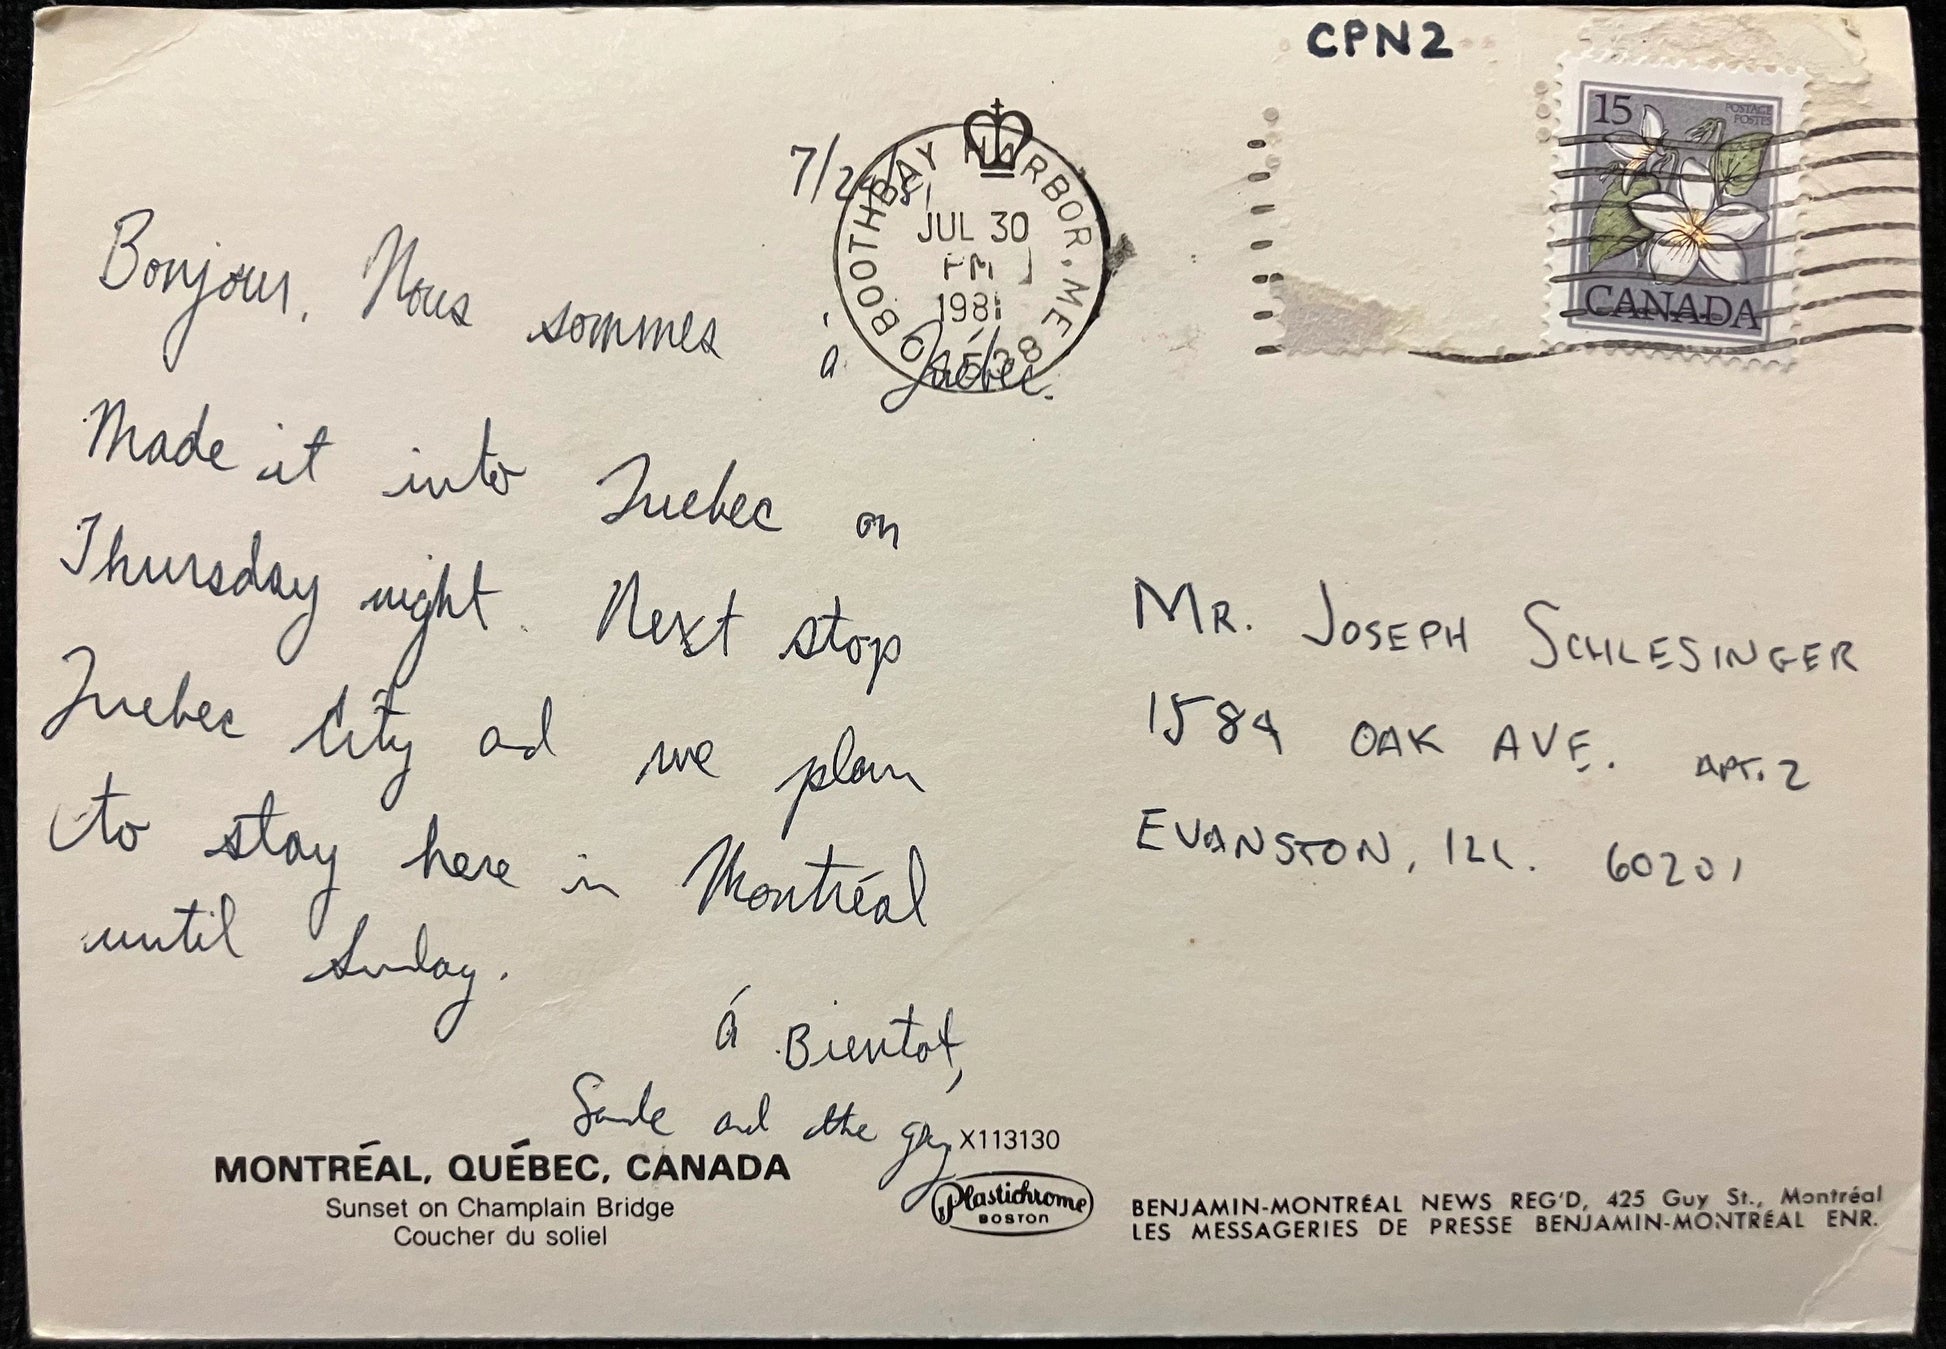 CPN2
15
POSTAGE
POSTES
CANADA
BOOTHBAY HARBOR, ME
JUL 30
PM
1981
Bonjour, Nous sommes à Québec.
Made it into Quebec on
Thursday night. Next stop
Quebec City and we plan
to stay here in Montréal
until Sunday.
á Bientot,
and the
MR. JOSEPH SCHLESINGER
1584 OAK AVE. APT. 2
EVANSTON, ILL. 60201
MONTRÉAL, QUÉBEC, CANADA
Sunset on Champlain Bridge
Coucher du soliel
X113130
Plastichrome
BOSTON
BENJAMIN-MONTRÉAL NEWS REG'D, 425 Guy St., Montréal
LES MESSAGERIES DE PRESSE BENJAMIN-MONTRÉAL ENR.